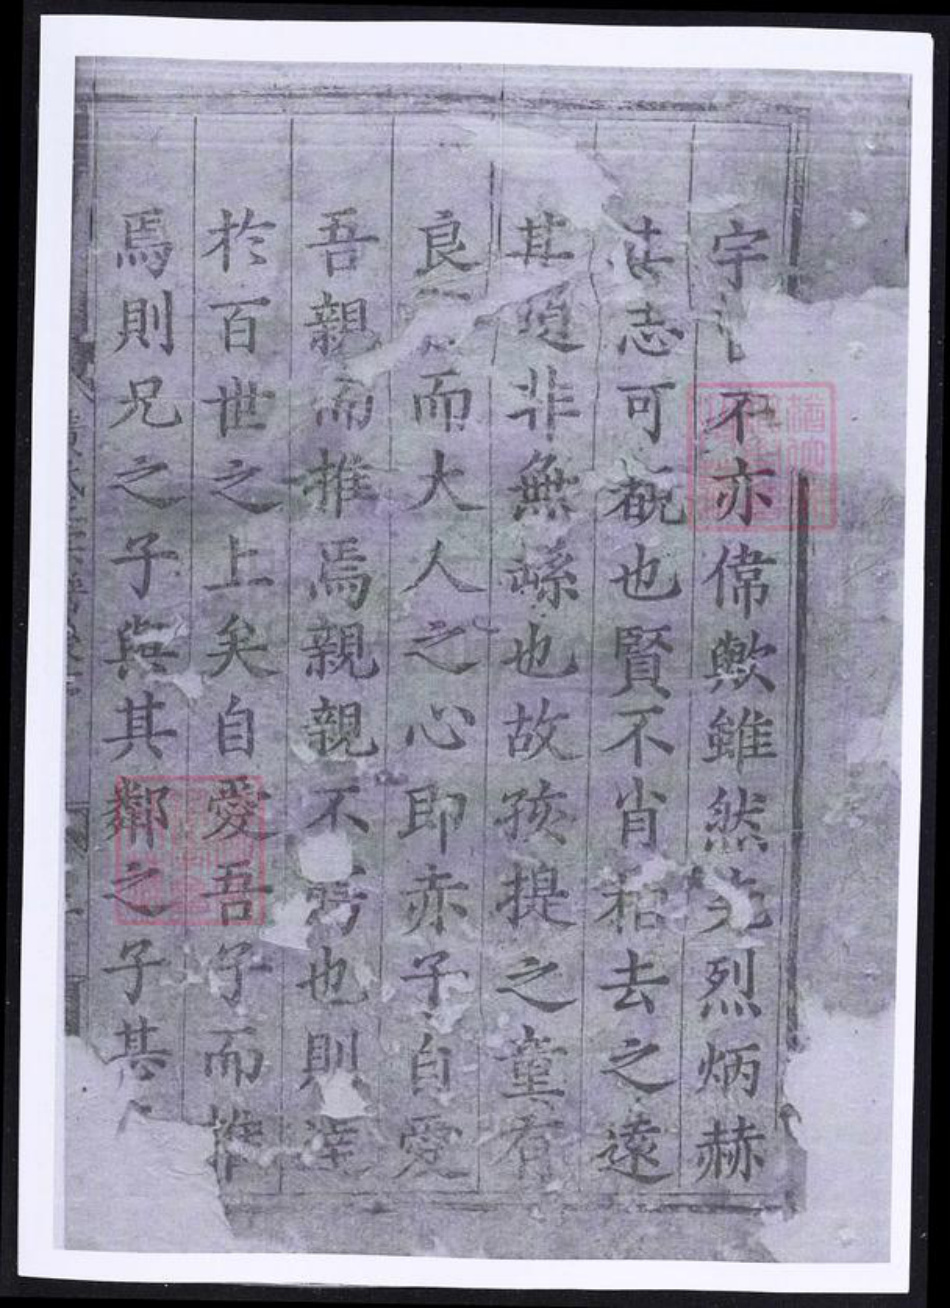 宇不亦偉歟雖然先烈炳赫
其志可槪也賢不肖相去之遠
其頭非無繇也故孩提之童有
良而大人之心即赤子自愛
吾親而推焉親親不窮也則達
於百世之上矣自愛吾子而推
焉則兄之子與其鄰之子其